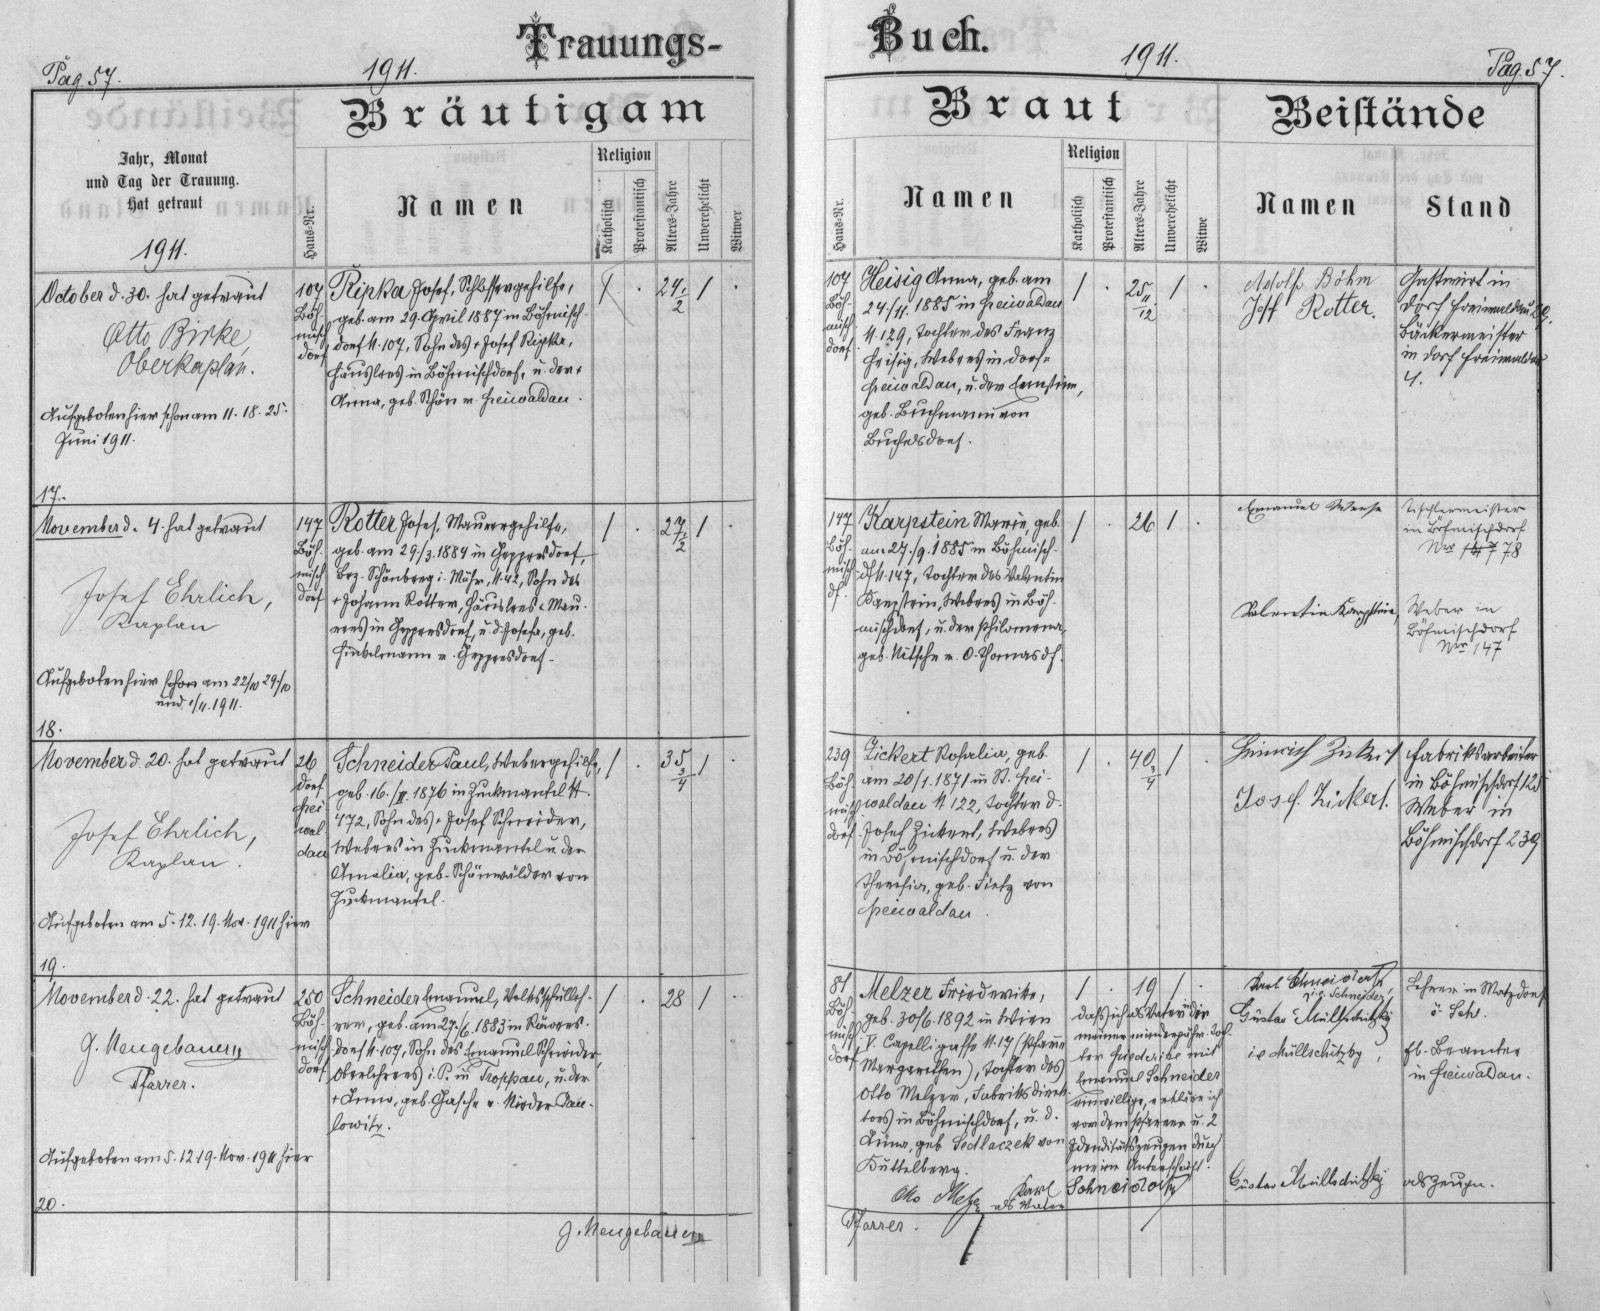 Trauungs-
Buch.
Pag. 57.
1911.
1911.
Pag. 57.
Bräutigam
Braut
Beistände
Jahr, Monat
und Tag der Trauung.
Hat getraut
1911.
Haus-Nr.
Namen
Religion
Katholisch
Protestantisch
Alters-Jahre
Unverehelicht
Witwer
Haus-Nr.
Namen
Religion
Katholisch
Protestantisch
Alters-Jahre
Unverehelicht
Witwe
Namen
Stand
October d. 30. hat getraut
Otto Birke,
Oberkaplan.
Aufgeboten hier schon am 11. 18. 25.
Juni 1911.
17.
107
Böh-
misch
dorf
Ripka Josef, Schlossergehilfe,
geb. am 29. April 1887 in Böhmisch-
dorf N. 107, Sohn des + Josef Ripka,
Häuslers in Böhmischdorf, u. der +
Anna, geb. Schön v. Freiwaldau.
1 . 24 1/2 1 .
107
Böh-
misch
dorf
Heisig Anna, geb. am
24/11. 1885 in Freiwaldau
N. 129, Tochter des Franz
Heisig, Webers in Dorf-
Freiwaldau, u. der Ernstine,
geb. Buchmann von
Buchelsdorf.
1 . 25 11/12 1 .
Adolf Böhm
Josef Rotter.
Gastwirt in
Dorf Freiwaldau 29.
Bäckermeister
in Dorf Freiwaldau
4.
November d. 4. hat getraut
Josef Ehrlich,
Kaplan
Aufgeboten hier schon am 22/10 29./10
und 1/11. 1911.
18.
147
Böh-
misch
dorf
Rotter Josef, Maurergehilfe,
geb. am 29/3. 1884 in Geppersdorf,
Bez. Schönberg i. Mähr. N. 42, Sohn des
+ Johann Rotter, Häuslers u. Mau-
rers in Geppersdorf, u. d. Josefa, geb.
Hinkelmann v. Geppersdorf.
1 . 27 1/2 1 .
147
Böh-
misch
df.
Karpstein Marie, geb.
am 27./9. 1885 in Böhmisch-
df N. 147, Tochter des Valentin
Karpstein, Webers in Böh-
mischdorf, u. der Philomena,
geb. Nitsche v. O. Thomasdf.
1 . 26 1 .
Emanuel Weese
Valentin Karpstein,
Tischlermeister
in Böhmischdorf
Nr 78
Weber in
Böhmischdorf
Nr 147
November d. 20. hat getraut
Josef Ehrlich,
Kaplan.
Aufgeboten am 5. 12. 19. Nov. 1911 hier
19.
26
Dorf
Frei
wal
dau
Schneider Paul, Webergehilfe,
geb. 16./III. 1876 in Zuckmantel N.
472, Sohn des + Josef Schneider,
Webers in Zuckmantel u. der
Amalia, geb. Schönwälder von
Zuckmantel.
1 . 35 3/4 1 .
239
Böh-
misch
dorf
Zickert Rosalia, geb.
am 20/1. 1871 in St. Frei-
waldau N 122, Tochter d.
Josef Zickert, Webers
in Böhmischdorf u. der
Theresia, geb. Tietz von
Freiwaldau.
1 . 40 3/4 1 .
Heinrich Zickert
Josef. Zickert.
Fabriksarbeiter
in Böhmischdorf 125
Weber in
Böhmischdorf 239
November d. 22. hat getraut
J. Neugebauer
Pfarrer.
Aufgeboten am 5. 12 19. Nov. 1911 hier
20.
280
Böh-
misch
dorf
Schneider Emanuel, Volksschulleh-
rer, geb. am 27./6. 1883 in Röwers-
dorf N. 107, Sohn des Emanuel Schneider,
Oberlehrers i. P. in Troppau, u. der
+ Anna, geb. Gasche v. Nieder Pau-
lowitz.
1 . 28 1 .
81
Böh
misch
dorf
Melzer Friederike,
geb. 30/6. 1892 in Wien
V. Capelligasse N. 17 (Pfarre
Margarethen), Tochter des
Otto Melzer, Fabriksdirek-
tors in Böhmischdorf, u. d.
Anna, geb. Sedlaczek von
Kuttelberg.
1 . 19 1 .
Daß ich als Vater in der
meiner minderjähr. Toch
ter Friederike mit
Emanuel Schneider
einwillige, erkläre ich
vor dem Pfarrer u. 2
Identitätszeugen durch
meine Unterschrift.
Otto Melzer
als Vater
Karl Schneider
Karl Schneider,
v. g. Schneider,
Gustav Müllschitzky
i. e. Müllschitzky,
Lehrer in Matzdorf
ö. Schl.
fb. Beamter
in Freiwaldau.
Gustav Müllschitzky
als Zeuge.
J. Neugebauer
Pfarrer.